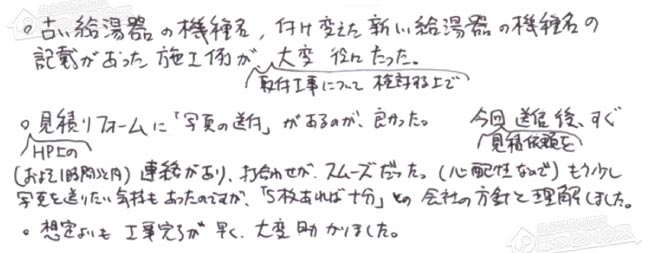 ○ 古い給湯器の機種名，付け変えた新しい給湯器の機種名の
記載があった施工例が大変役にたった。
取付工事について検討する上で
○ 見積りフォームに「写真の送付」があるのが、良かった。 今回送信後、すぐ
HP上の 見積依頼を
(およそ1時間以内) 連絡があり、打合わせが、スムーズだった。(心配性なので) もう少し
写真を送りたい気持もあったのですが、「5枚あれば十分」との会社の方針と理解しました。
○ 想定よりも工事完了が早く、大変助かりました。